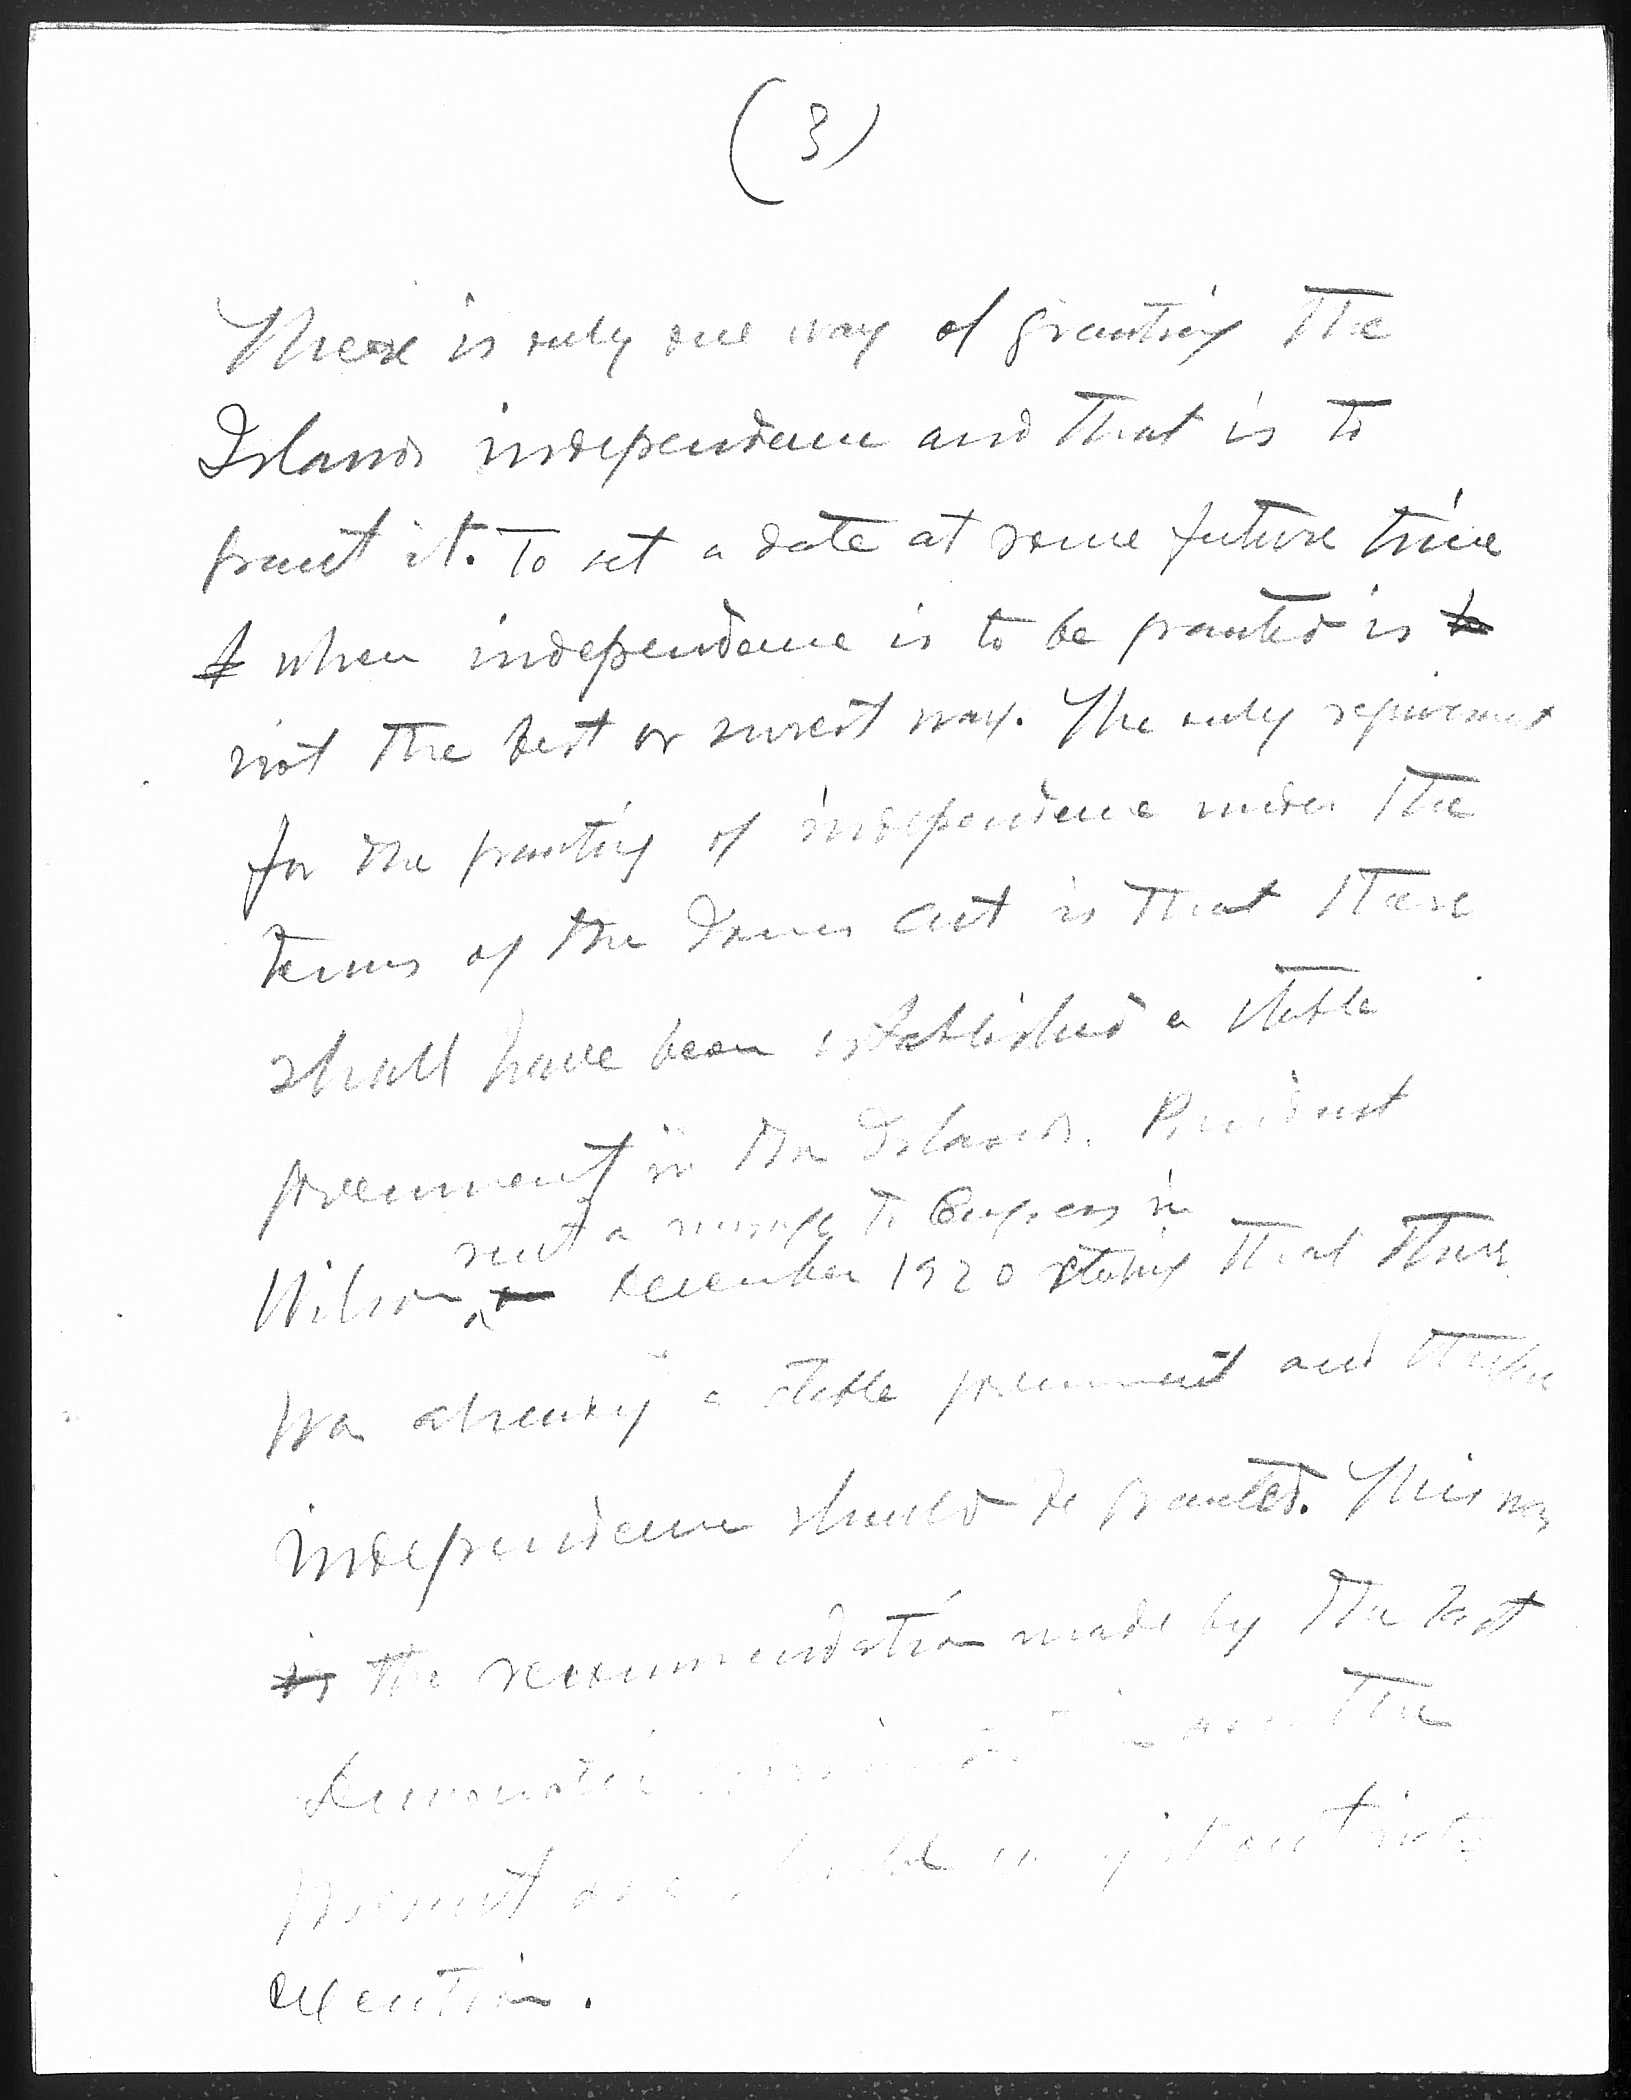 (3)
There is only one way of granting the
Islands independence and that is to
grant it. To set a date at some future time
when independence is to be granted is to
not the best or surest way. The only requirement
for the granting of independence under the
terms of the Jones Act is that there
shall have been established a stable
government in the Islands. President
sent a message to Congress in
Wilson December 1920 stating that there
was already a stable government and
independence should be granted. This was
is the recommendation made by the last
Democratic administration and the
present one should
execution.